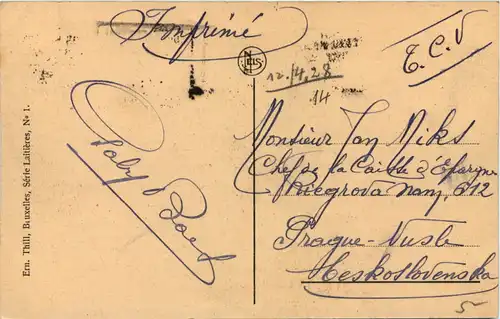 Imprimé
T.C.V
NELS
12./4.28
14
Monsieur Jan Miks
Chef de la Caisse d'Épargne
Riegrova nam, 612
Prague-Nusle
Ceskoslovensko
Ern. Thill, Bruxelles, Série Laitières, No 1.
5-